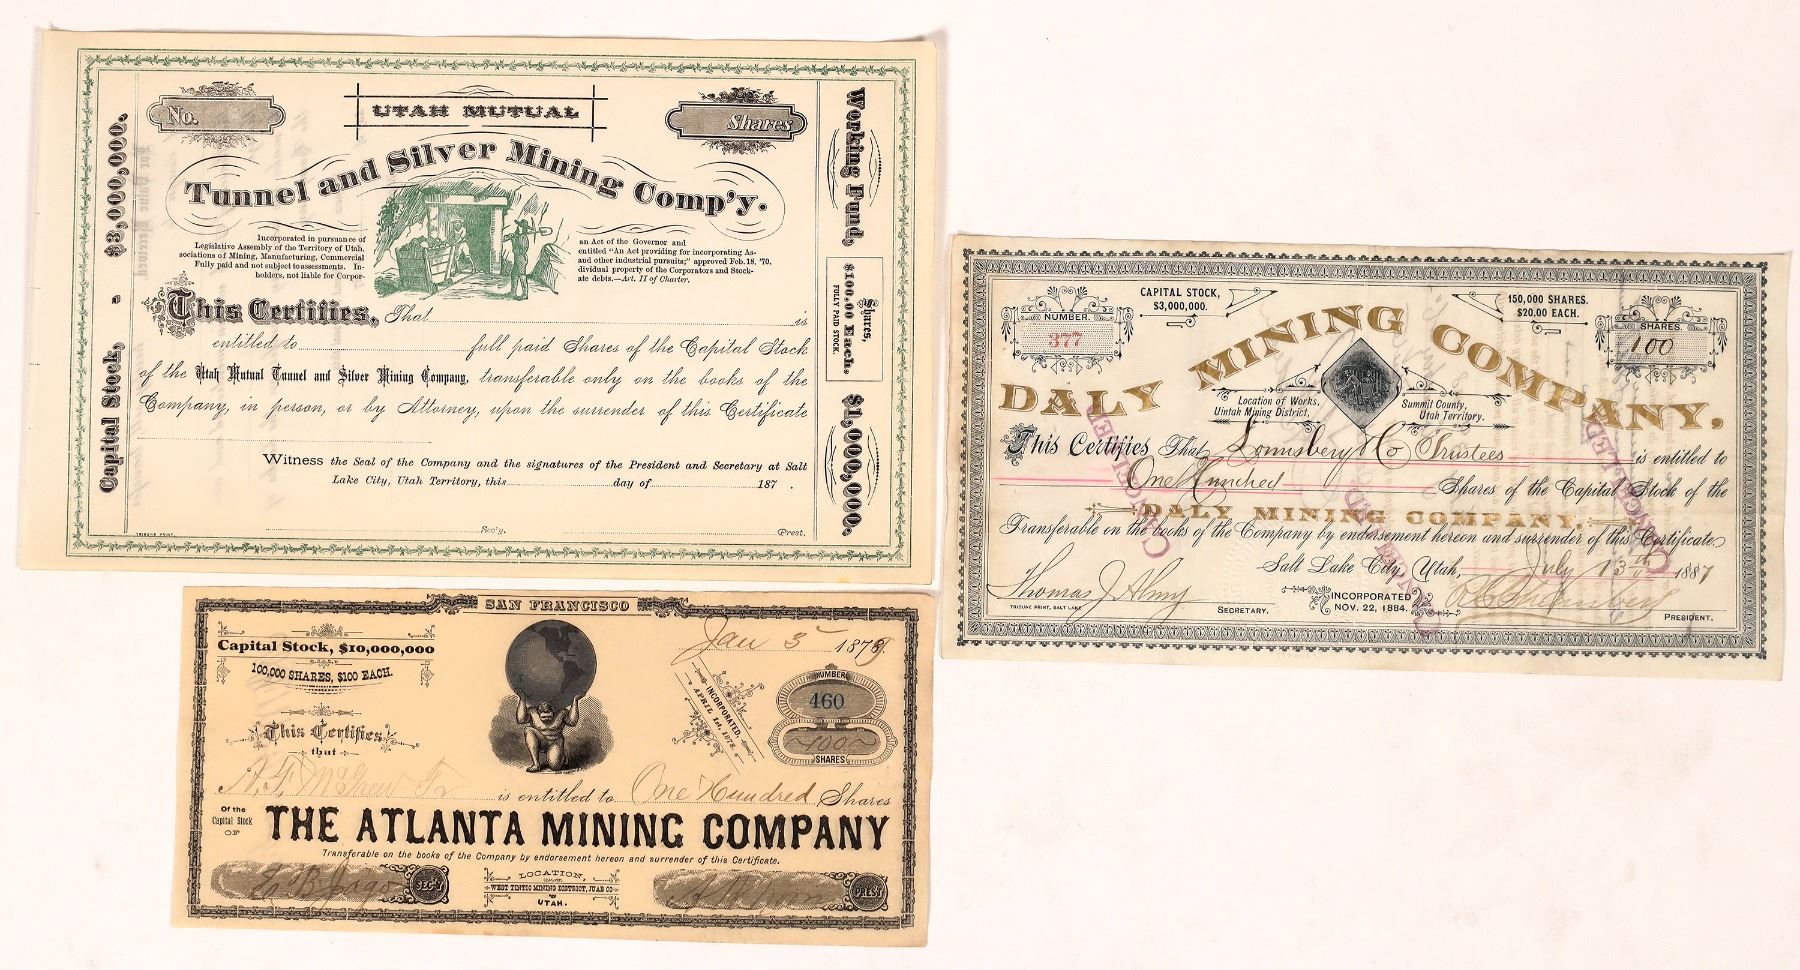 No.
UTAH MUTUAL
Shares
Tunnel and Silver Mining Comp'y.
Incorporated in pursuance of
Legislative Assembly of the Territory of Utah,
sociations of Mining, Manufacturing, Commercial
Fully paid and not subject to assessments. In-
holders, not liable for Corpor-
an Act of the Governor and
entitled "An Act providing for incorporating As-
and other industrial pursuits;" approved Feb. 18, '70.
dividual property of the Corporators and Stock-
ate debts.—Art. II of Charter.
This Certifies, That is
entitled to full paid Shares of the Capital Stock
of the Utah Mutual Tunnel and Silver Mining Company, transferable only on the books of the
Company, in person, or by Attorney, upon the surrender of this Certificate
Witness the Seal of the Company and the signatures of the President and Secretary at Salt
Lake City, Utah Territory, this day of 187 .
Sec'y. Prest.
TRIBUNE PRINT.
Capital Stock, - $3,000,000.
Working Fund, $1,000,000.
Shares,
$100,00 Each.
FULLY PAID STOCK.
NUMBER.
377
CAPITAL STOCK,
$3,000,000.
150,000 SHARES.
$20.00 EACH.
SHARES.
100
DALY MINING COMPANY.
Location of Works,
Uintah Mining District,
Summit County,
Utah Territory.
This Certifies That Lounsbery & Co Trustees is entitled to
One Hundred Shares of the Capital Stock of the
DALY MINING COMPANY,
Transferable on the books of the Company by endorsement hereon and surrender of this Certificate.
Salt Lake City, Utah, July 13th 1887
Thomas J Almy
SECRETARY.
INCORPORATED
NOV. 22, 1884.
PRESIDENT.
TRIBUNE PRINT, SALT LAKE
CANCELLED
CANCELLED
CANCELLED
SAN FRANCISCO
Capital Stock, $10,000,000
100,000 SHARES, $100 EACH.
Jan 3 1879
INCORPORATED,
APRIL 1st, 1878.
NUMBER
460
100
SHARES
This Certifies
that
A. F. McGrew Tr is entitled to One Hundred Shares
Of the
Capital Stock
OF
THE ATLANTA MINING COMPANY
Transferable on the books of the Company by endorsement hereon and surrender of this Certificate.
E B Jago
SEC'Y
LOCATION,
WEST TINTIC MINING DISTRICT, JUAB CO
UTAH.
PREST